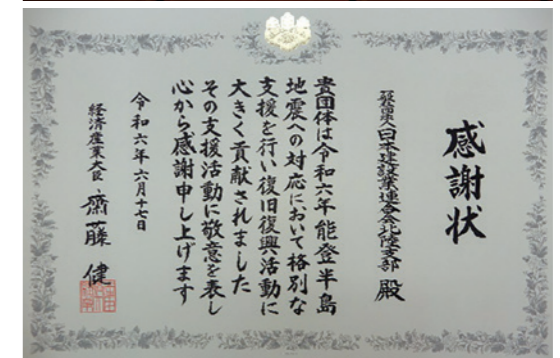 感謝状
一般社団法人日本建設業連合会北陸支部 殿
貴団体は令和六年能登半島
地震への対応において格別な
支援を行い復旧復興活動に
大きく貢献されました
その支援活動に敬意を表し
心から感謝申し上げます
令和六年六月十七日
経済産業大臣 齋藤 健